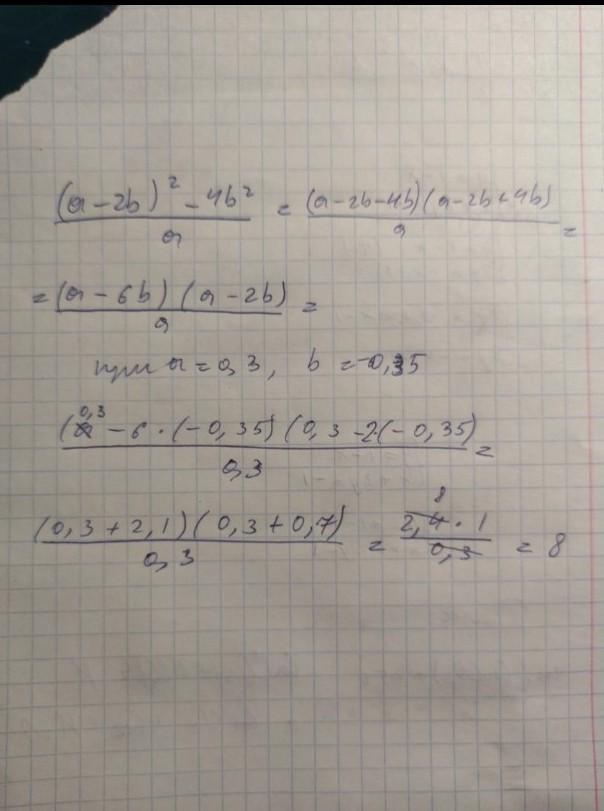 ((a-2b)² - 4b²)/a = ((a-2b-4b)(a-2b+4b))/a =
= ((a-6b)(a-2b))/a =
при a = 0,3, b = -0,35
((0,3 - 6·(-0,35)(0,3-2·(-0,35))/0,3 =
((0,3+2,1)(0,3+0,7))/0,3 = (2,4·1)/0,3 = 8